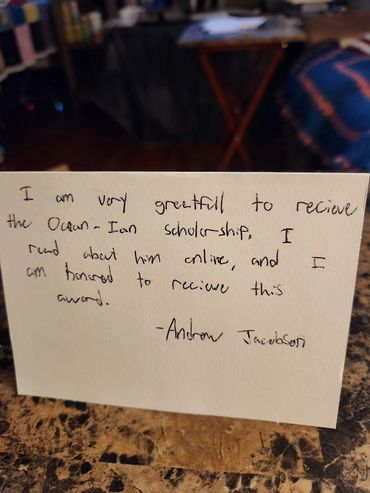 I am very greatfull to recieve
the Ocean-Ian scholarship. I
read about him online, and I
am honored to recieve this
award.
-Andrew Jacobson